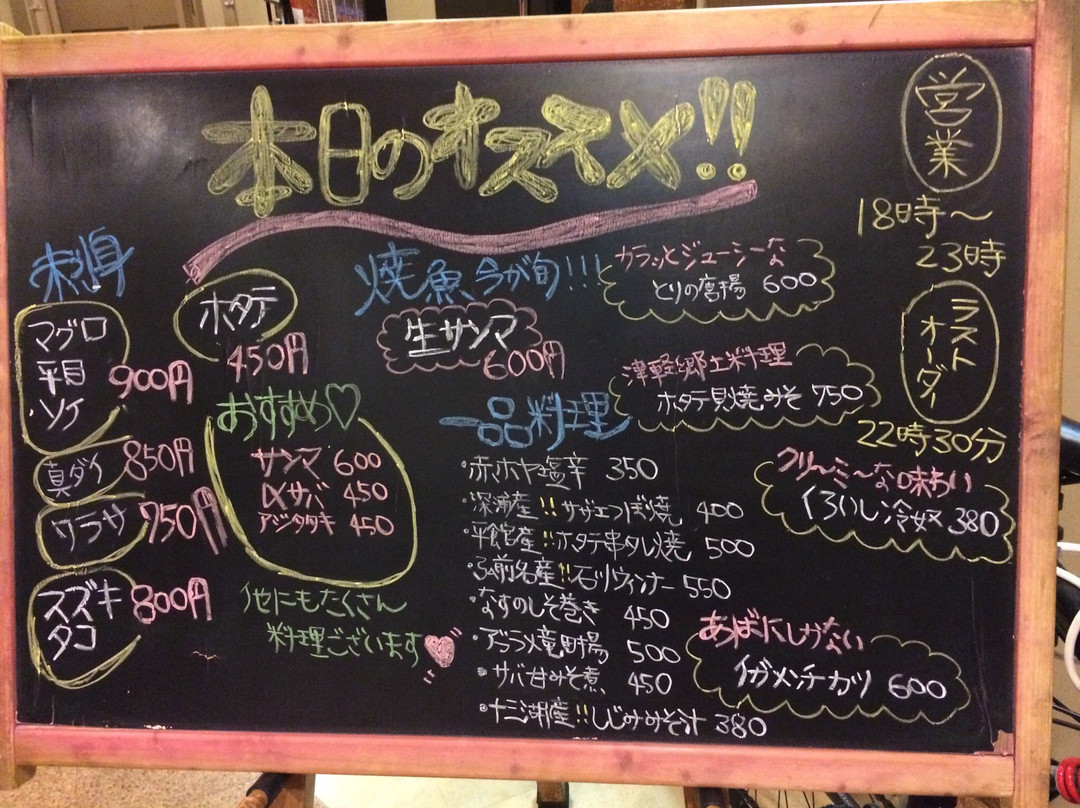 本日のオススメ!!
営業
18時〜
23時
ラスト
オーダー
22時30分
刺身
マグロ
平目
ソイ
900円
真ダイ 850円
ワラサ 750円
スズキ
タコ
800円
ホタテ
450円
おすすめ♡
サンマ 600
〆サバ 450
アジタタキ 450
他にもたくさん
料理ございます
焼魚、今が旬!!!
生サンマ
600円
一品料理
・赤ホヤ塩辛 350
・深浦産!!サザエつぼ焼 400
・平館産!!ホタテ串タレ焼 500
・弘前名産!!石川ウィンナー 550
・なすのしそ巻き 450
・アブラメ竜田揚 500
・サバ甘みそ煮 450
・十三湖産!!しじみみそ汁 380
カラッとジューシーな
とりの唐揚 600
津軽郷土料理
ホタテ貝焼みそ 750
クリ〜ミ〜な味わい
くろいし冷奴 380
あばにしかない
イガメンチカツ 600